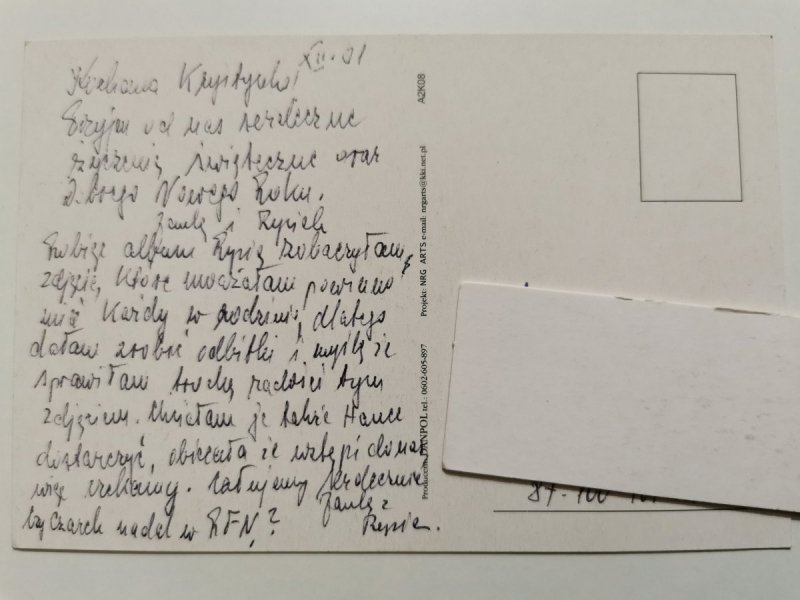 XII-01
Kochana Krystynko!
Przyjm od nas serdeczne
życzenia świąteczne oraz
Dobrego Nowego Roku.
i Rysiek
Robiąc album Rysia zobaczyłam
zdjęcie, które uważałam powinno
mieć każdy w rodzinie, dlatego
dałam zrobić odbitki i myślę że
sprawiłam trochę radości tym
zdjęciem. Chciałam je także Hance
dostarczyć, obiecała że wstąpi do nas
więc czekamy. Całujemy serdecznie
Rysiek.
Czy Czarek nadal w RFN?
A2K08
Projekt: NRG ARTS e-mail: nrgarts@kki.net.pl
Producent: DANPOL tel.: 0602-605-897
87-100